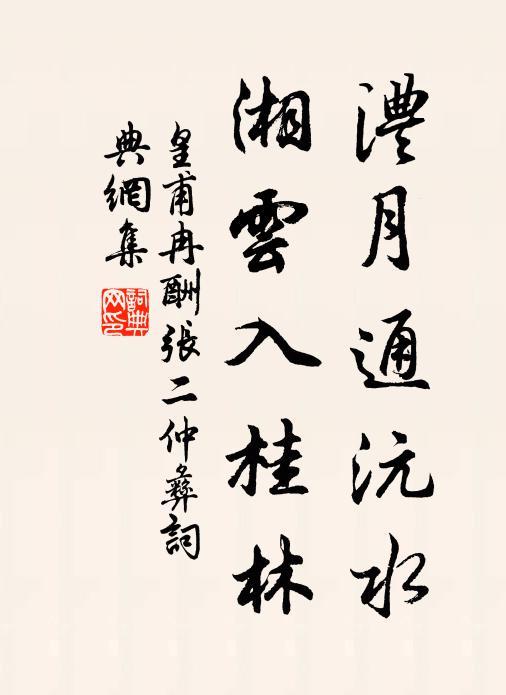 澧月通沅水
湘雲入桂林
皇甫冉酬張二仲彝詞
典網集
詞典
网印